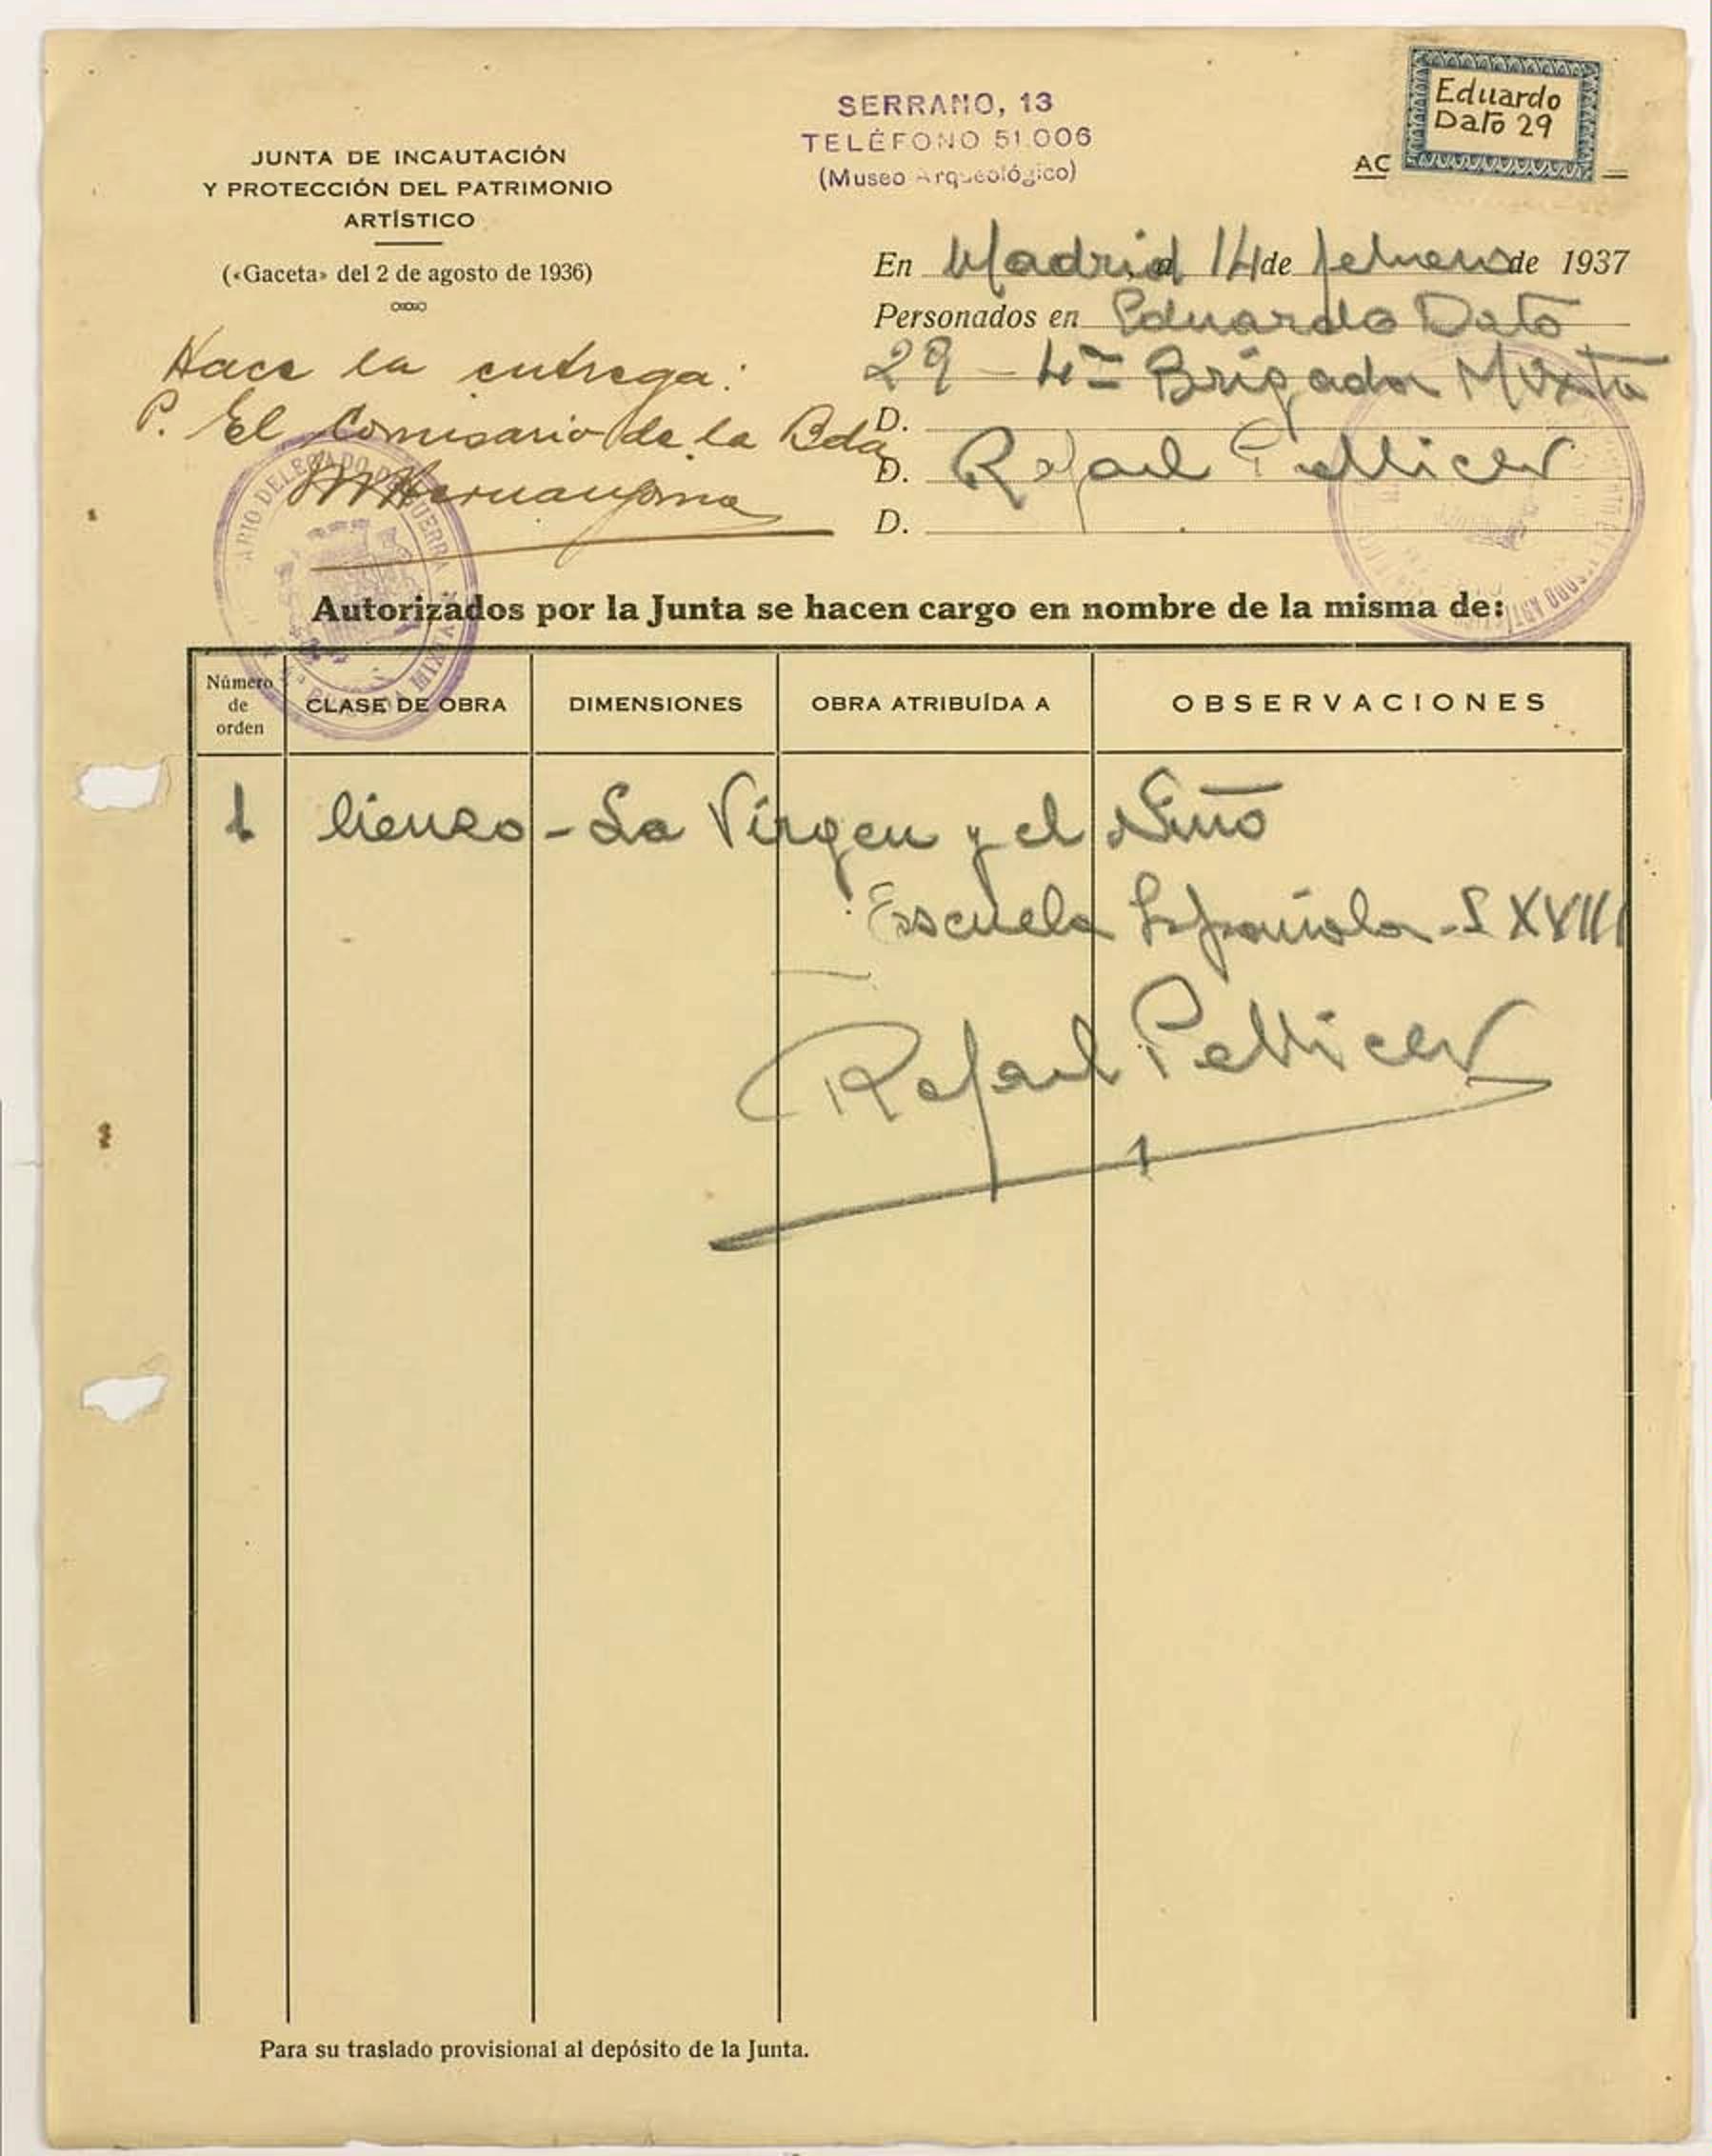 SERRANO, 13
TELÉFONO 51.006
(Museo Arqueológico)
Eduardo
Dato 29
AC
JUNTA DE INCAUTACIÓN
Y PROTECCIÓN DEL PATRIMONIO
ARTÍSTICO
(«Gaceta» del 2 de agosto de 1936)
En Madrid a 14 de febrero de 1937
Personados en Eduardo Dato
29 - 4ª Brigada Mixta
D.
D. Rafael Pellicer
D.
Hace la entrega:
P. El Comisario de la Bda
DELEGADO DE GUERRA
MIXTA
Autorizados por la Junta se hacen cargo en nombre de la misma de:
Número de orden
CLASE DE OBRA
DIMENSIONES
OBRA ATRIBUÍDA A
OBSERVACIONES
1 lienzo - La Virgen y el Niño
Escuela Española - S XVIII
Rafael Pellicer
Para su traslado provisional al depósito de la Junta.